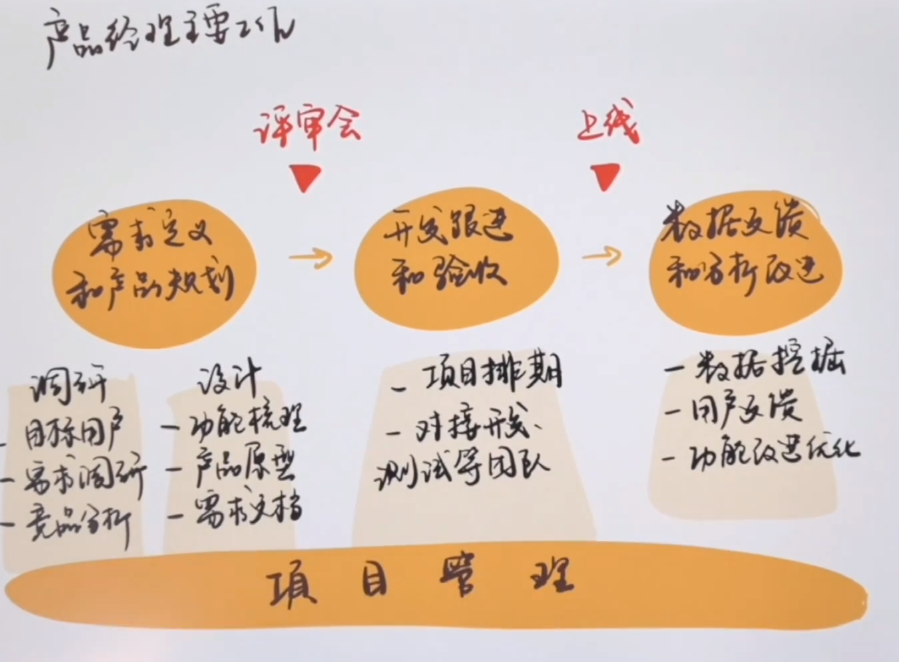 产品经理主要工作
评审会
上线
需求定义
和产品规划
开发跟进
和验收
数据反馈
和分析改进
调研
- 目标用户
- 需求调研
- 竞品分析
设计
- 功能梳理
- 产品原型
- 需求文档
- 项目排期
- 对接开发、
测试等团队
- 数据挖掘
- 用户反馈
- 功能改进优化
项目管理